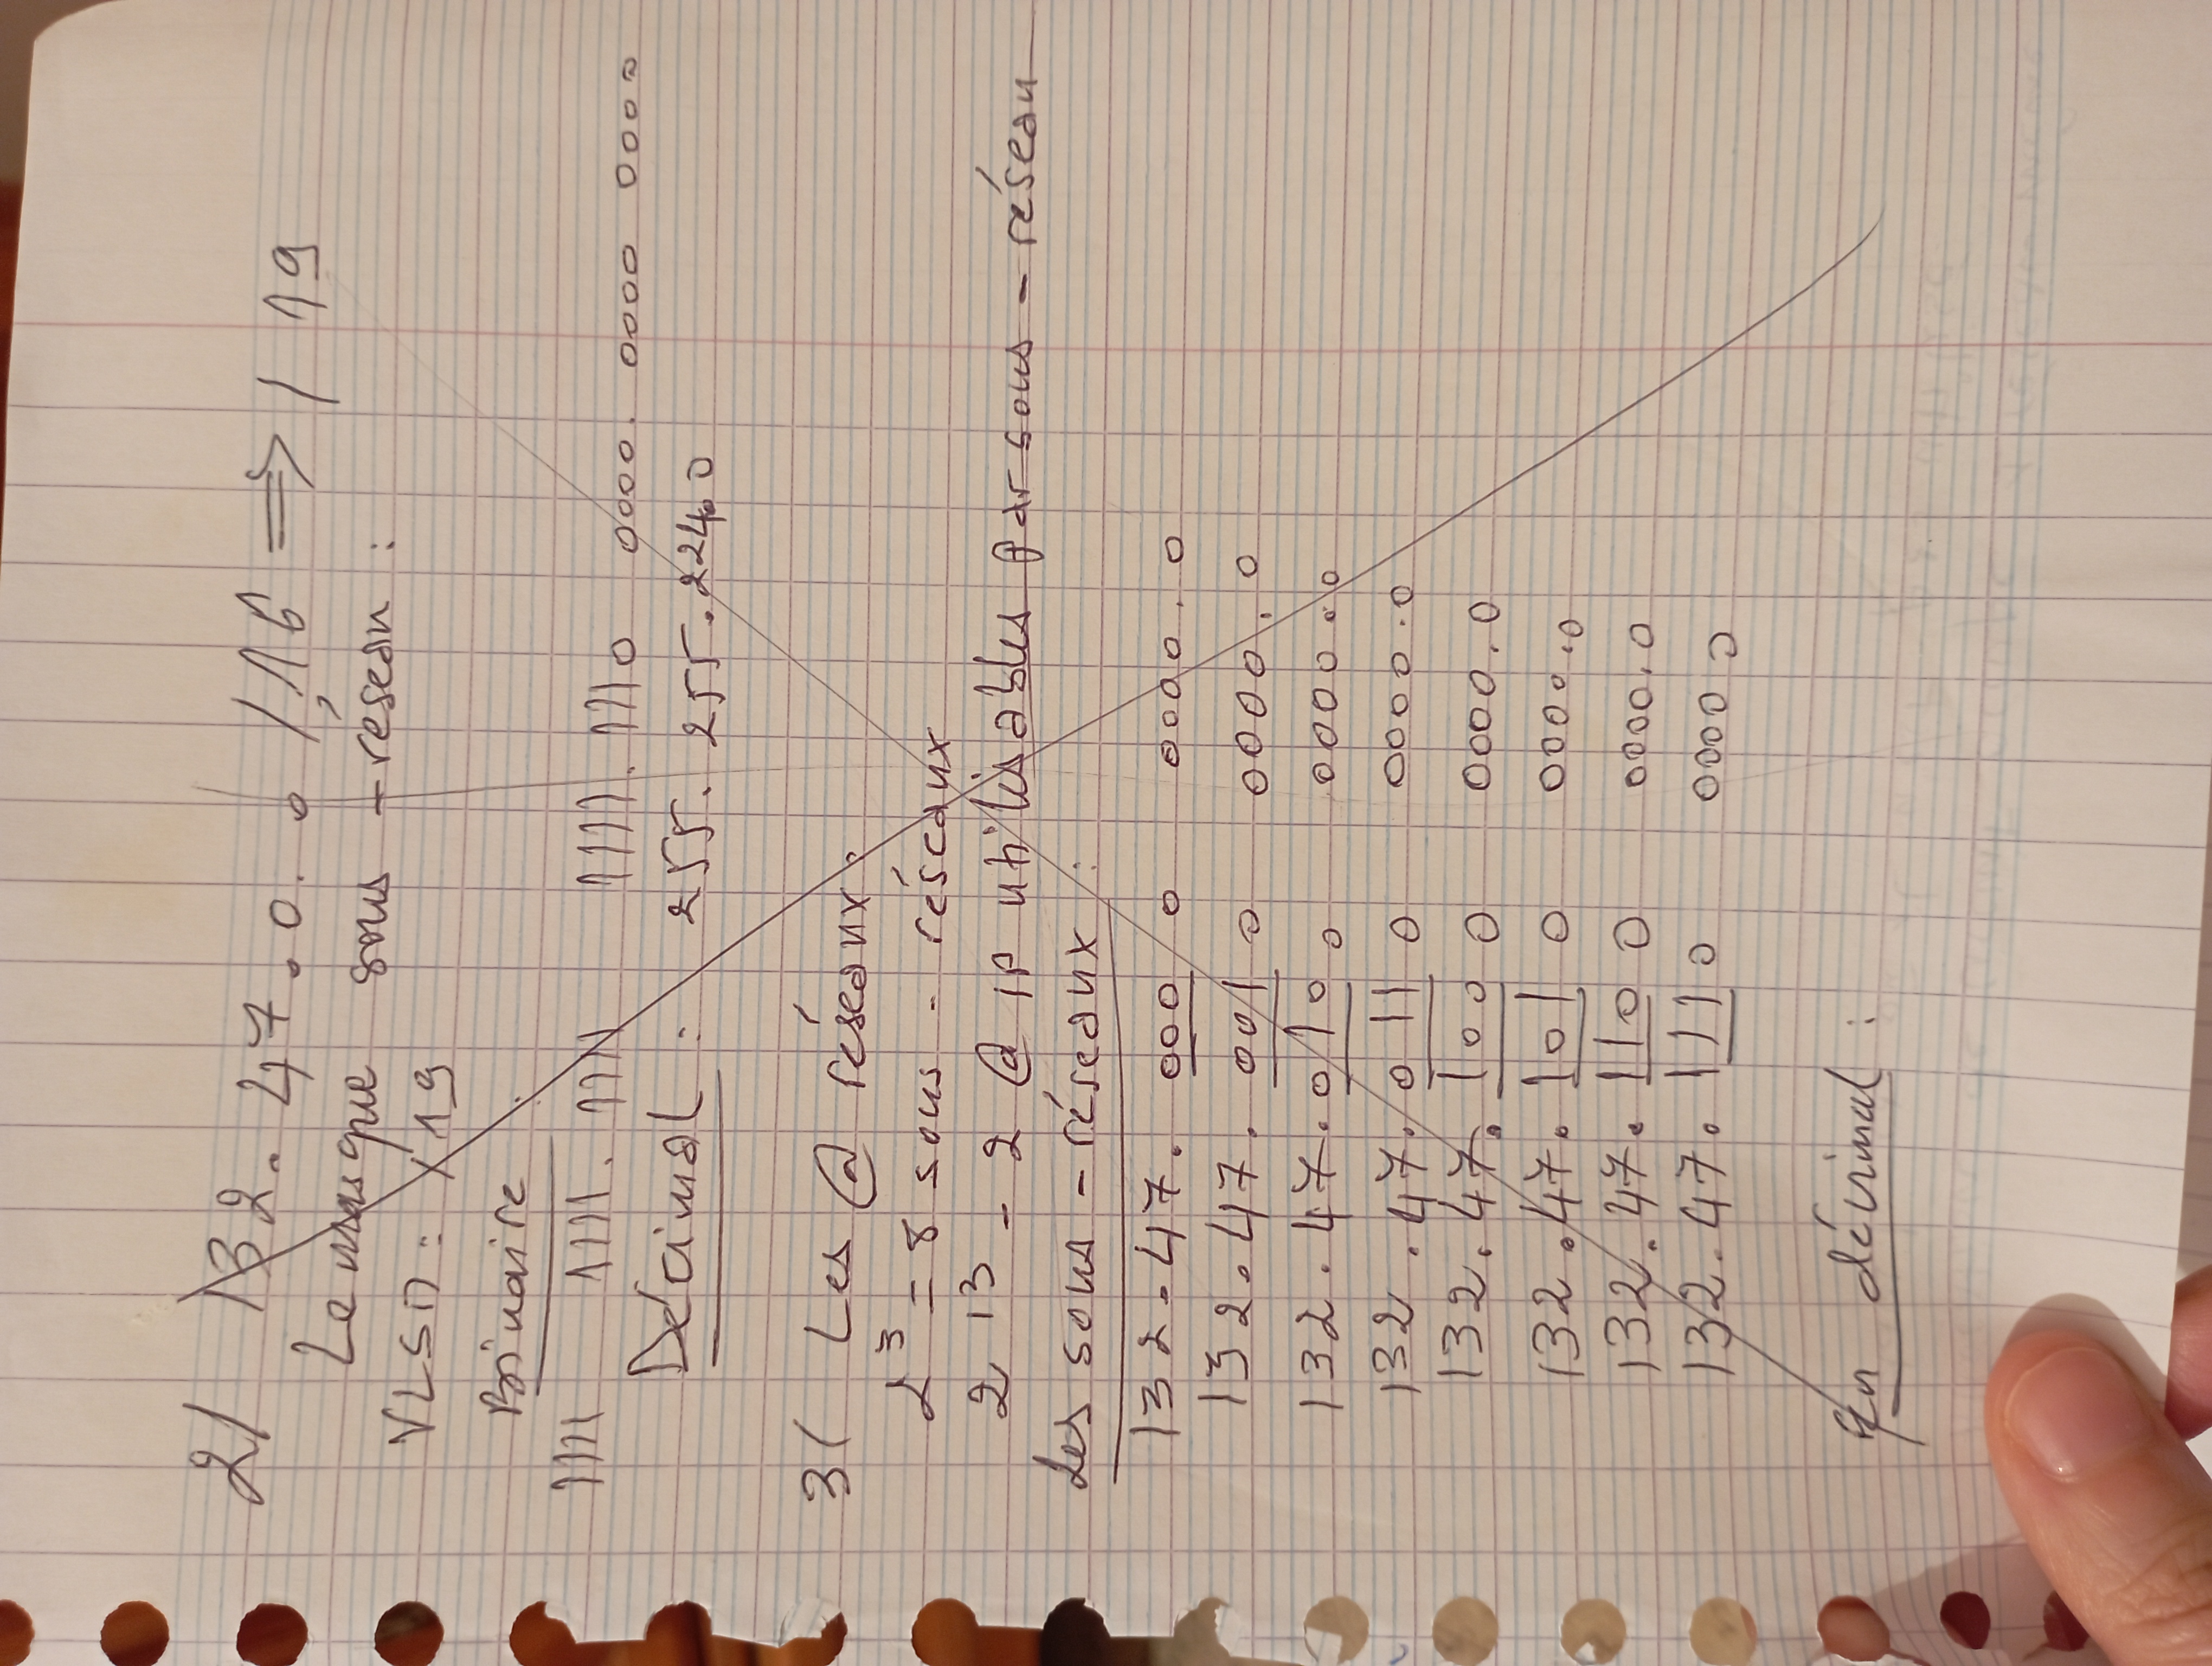 2/ 132.47.0.0 /16 ⇒ /19
Le masque sous-réseau :
VLSM : /19
Binaire :
1111 1111. 1111 1111. 1110 0000. 0000 0000
Décimal : 255. 255. 224.0
3/ Les @ réseaux :
2³ = 8 sous-réseaux
2¹³ - 2 @ IP utilisables par sous-réseau
Les sous-réseaux :
132.47. 000 0 0000.0
132.47. 001 0 0000.0
132.47. 010 0 0000.0
132.47. 011 0 0000.0
132.47. 100 0 0000.0
132.47. 101 0 0000.0
132.47. 110 0 0000.0
132.47. 111 0 0000 0
En décimal :